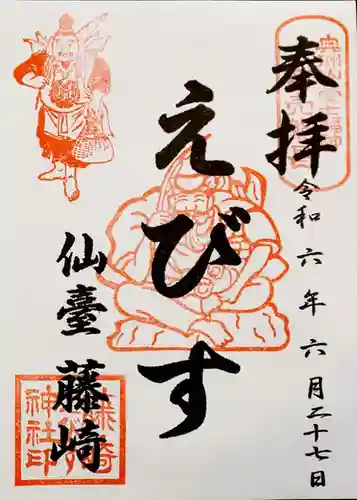 奉拝
令和六年六月二十七日
えびす
仙臺
藤崎
藤崎
神社印